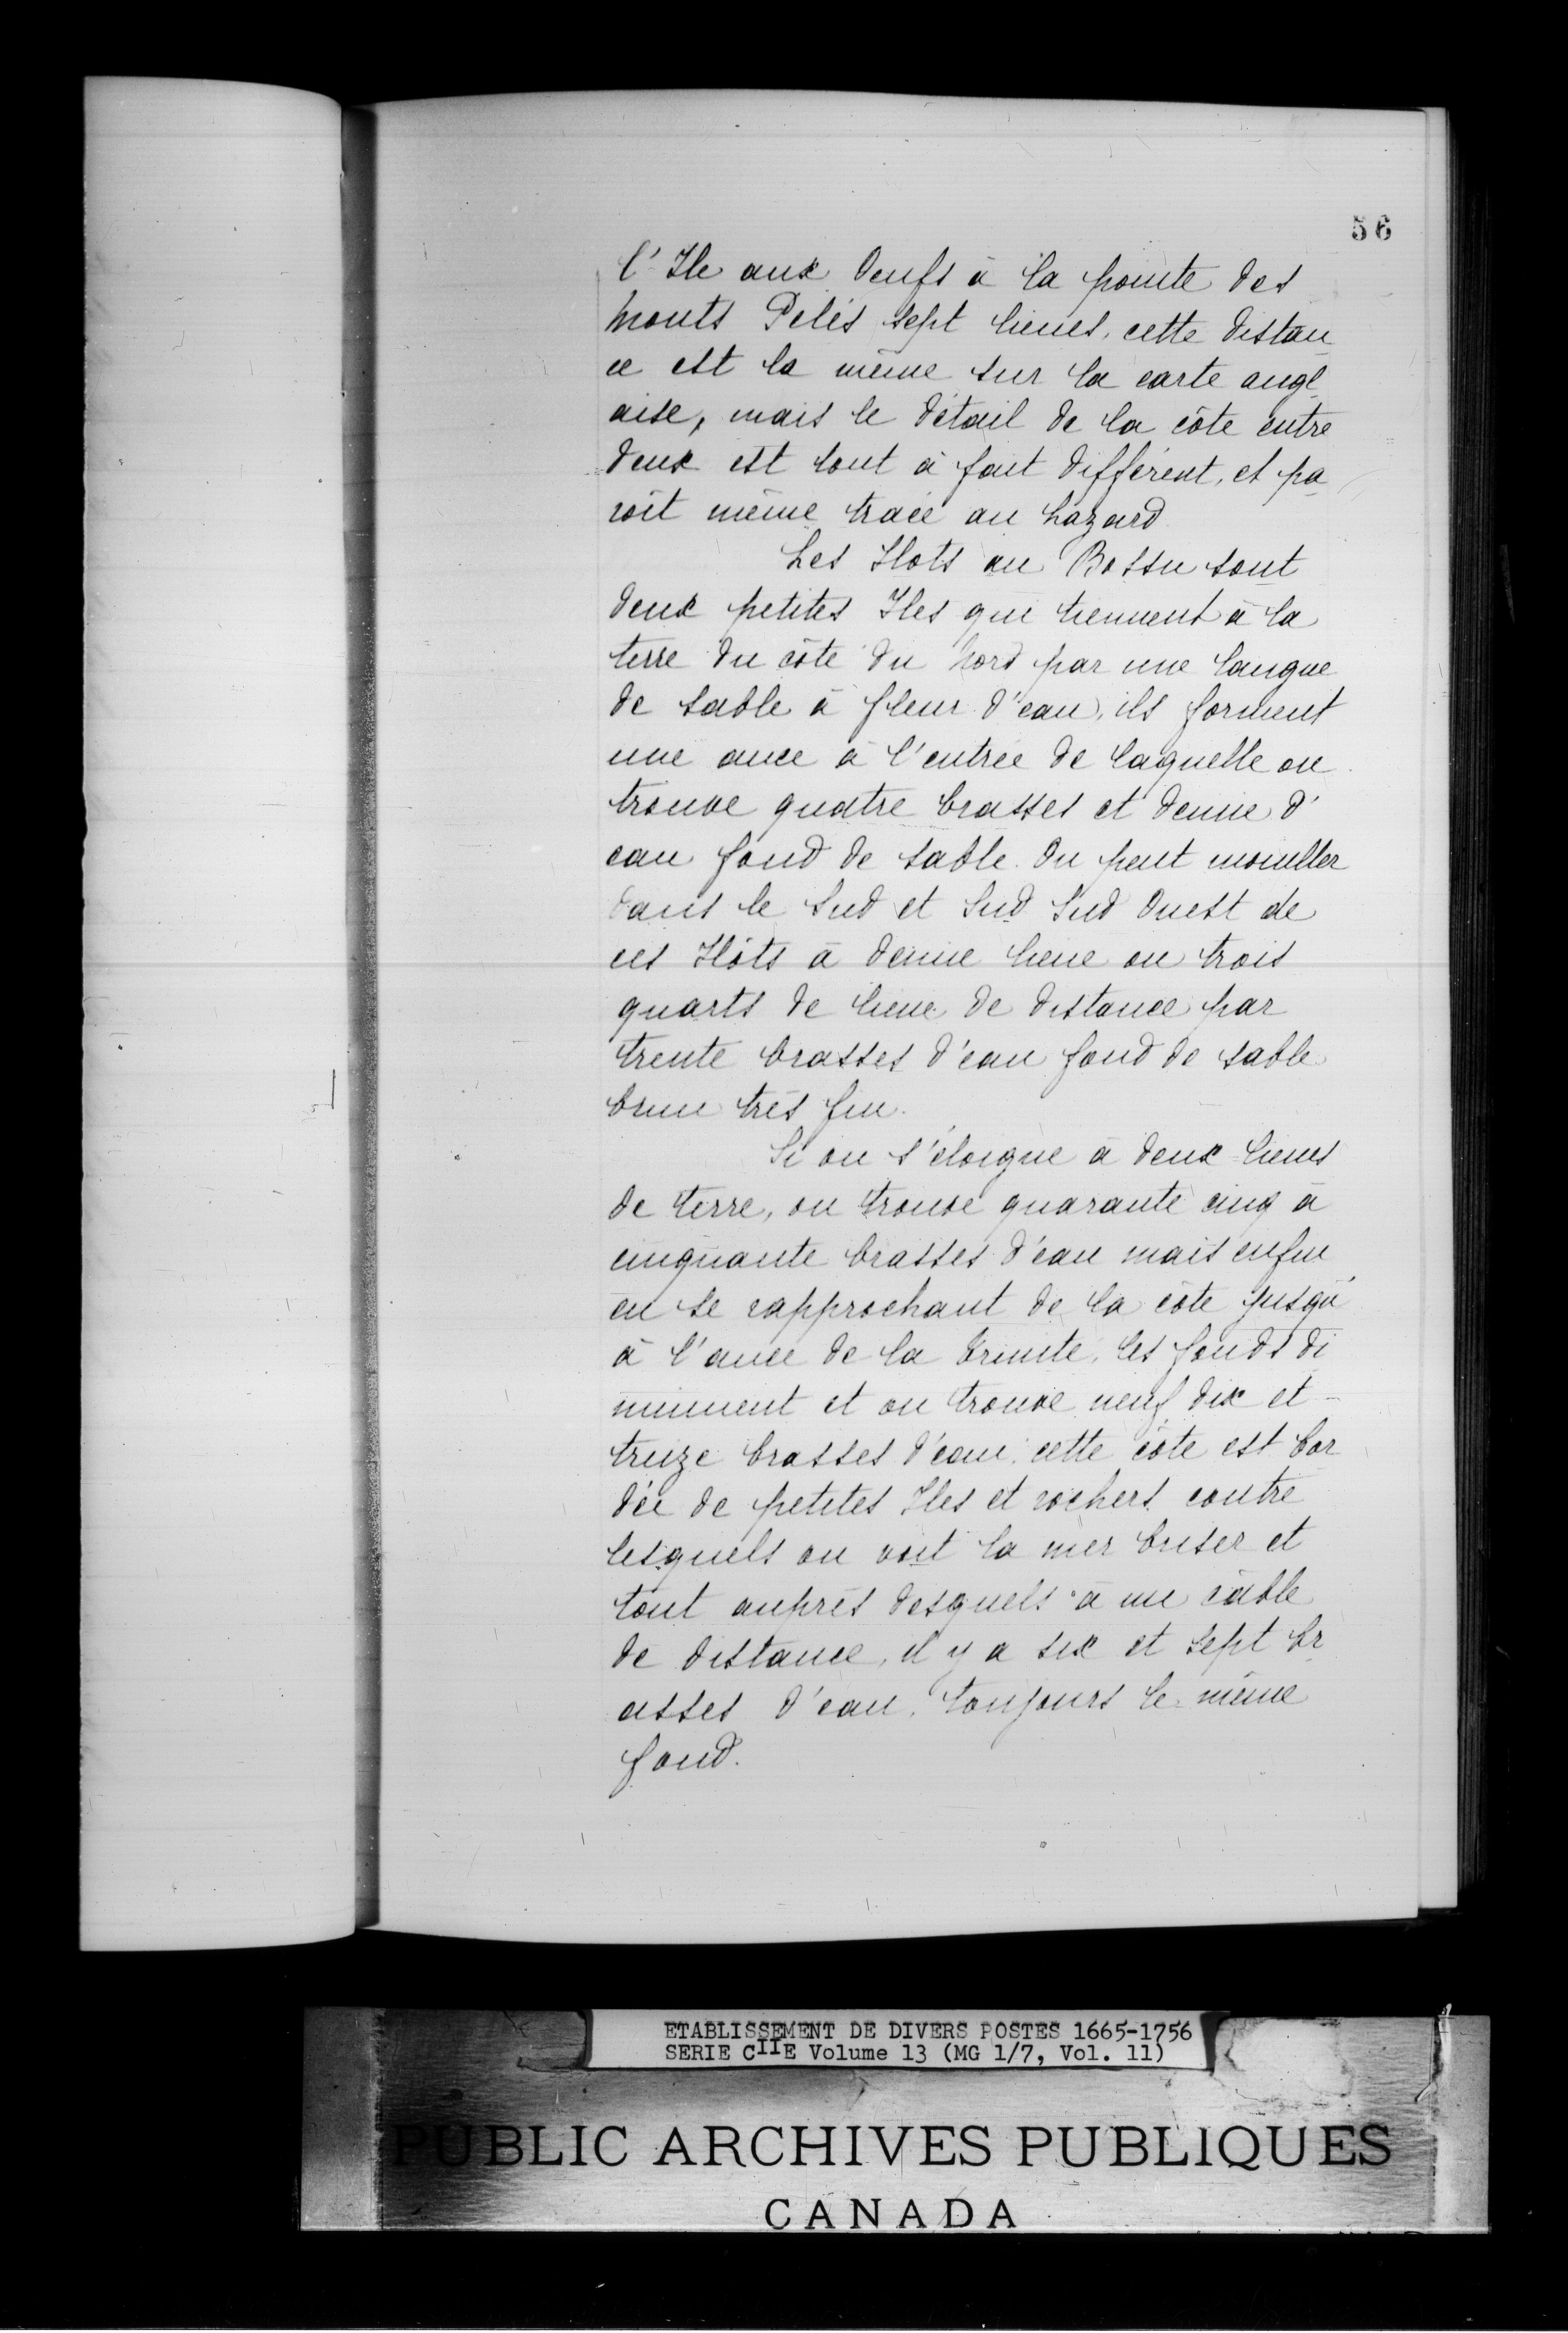 56
l'Ile aux Oeufs à la pointe des
monts Pelés sept lieues, cette distan
ce est la même sur la carte angl
aise, mais le détail de la côte entre
deux est tout à fait différent, et pa
roit même tracé au hazard
Les Ilots au Bossu sont
deux petites Iles qui tiennent à la
terre du côté du nord par une langue
de sable à fleur d'eau, ils forment
une ance à l'entrée de laquelle on
trouve quatre brasses et demie d'
eau fond de sable. On peut mouiller
dans le Sud et Sud Sud Ouest de
ces Ilôts à demie lieue ou trois
quarts de lieue de distance par
trente brasses d'eau fond de sable
brun très fin.
Si on s'éloigne à deux lieues
de terre, on trouve quarante cinq à
cinquante brasses d'eau mais enfin
en se rapprochant de la côte jusqu'
à l'ance de la trinité, les fonds di
minuent et on trouve neuf dix et
treize brasses d'eau, cette côte est bor
dée de petites Iles et rochers contre
lesquels on voit la mer briser et
tout auprès desquels à un câble
de distance, il y a six et sept br
asses d'eau, toujours le même
fond.
ETABLISSEMENT DE DIVERS POSTES 1665-1756
SERIE CIIE Volume 13 (MG 1/7, Vol. 11)
PUBLIC ARCHIVES PUBLIQUES
CANADA